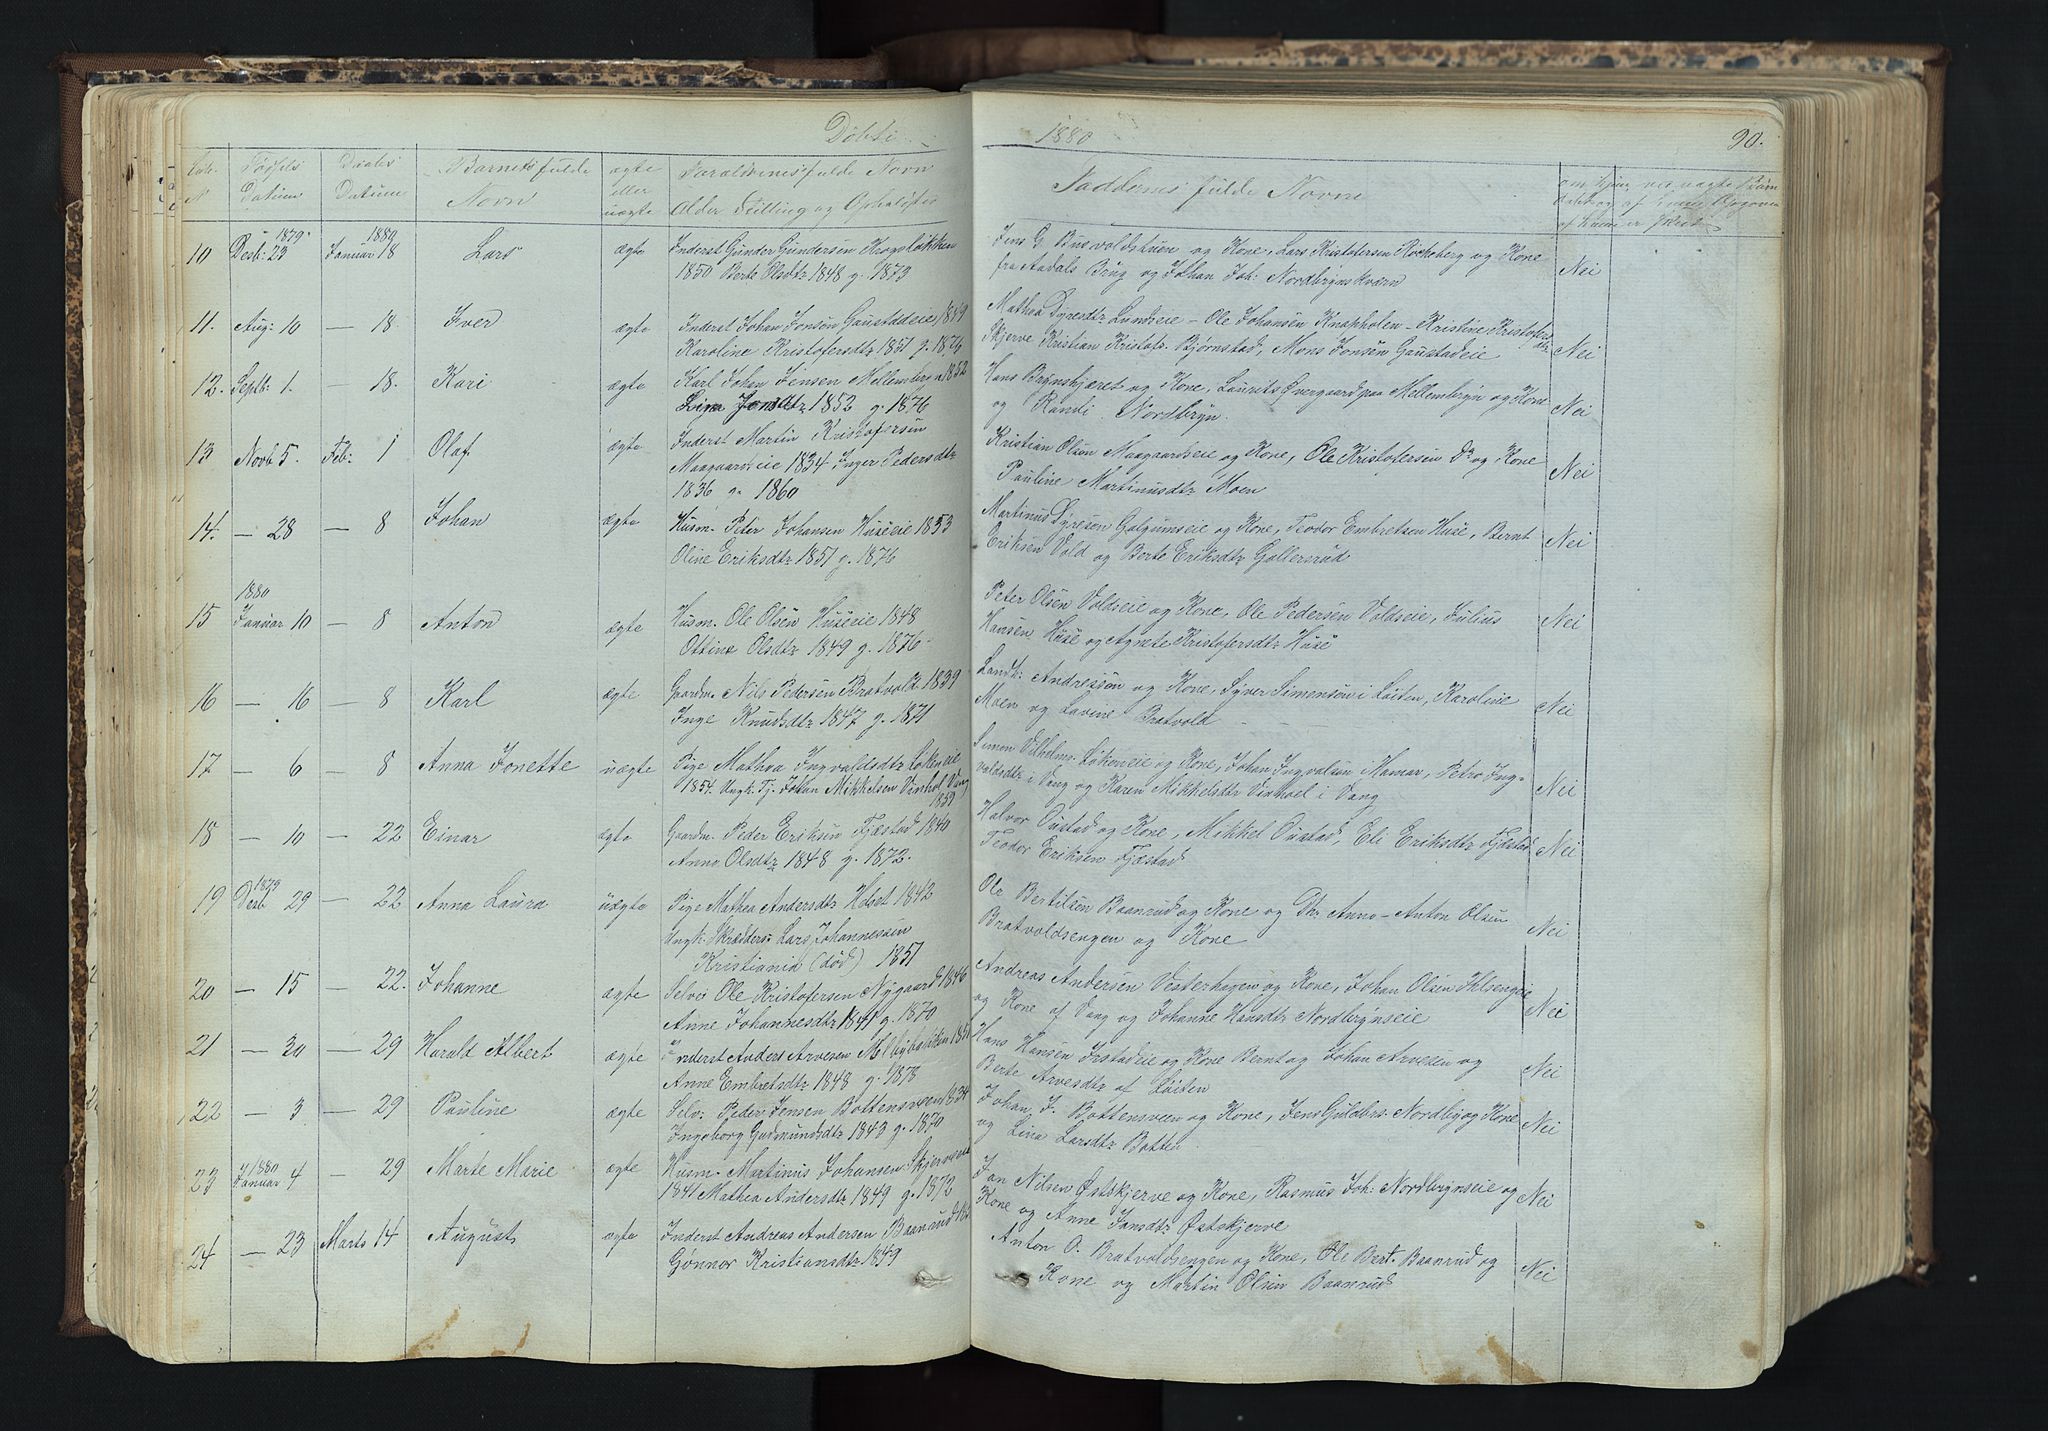 Döbte
1880
90.
Löb. N
Födsels Datum
Daabs Datum
Barnets fulde Navn
ægte eller uægte
Forældrenes fulde Navn
Alder Stilling og Opholdsted
Faddernes fulde Navne
10 1879 Desb: 23 1880 Januar 18 Lars ægte Inderst Gunder Gundersen Krogsløkken
1850 Berte Olsdtr 1848 g. 1873
Jens G. Busvoldstuen og Kone, Lars Kristofersen og Kone
fra Aadals Brug og Johan Joh: Nordbrynskværn
Nei
11. Aug: 10 — 18. Iver ægte Inderst Johan Jonsøn Gaustadeie 1849
Karoline Kristofersdtr 1851 g. 1876
Mathea Syresdtr Lundseie – Ole Johansen Knapholen – Kristine Kristofersdtr
Skjerve Kristian Kristofr. Bjørnstad, Mons Jonsen Gaustadeie
Nei
12. Septb: 1. — 18. Kari ægte Karl Johan Jensen Mellembryn 1852
Jonsdtr 1852 g. 1876
Hans Brynshjøret og Kone, Laurits Øvergaard paa Mellembryn og Kone
og Randi Nordbryn.
Nei
13 Novb 5. Feb: 1 Olaf ægte Inderst Martin Kristofersen
Maagaardseie 1834 Inger Pedersdtr
1836 g. 1860
Kristian Olsen Maagaardseie og Kone, Ole Kristofersen Do og Kone
Pauline Martinusdtr Moen
Nei
14. — 28 — 8 Johan ægte Husm. Peter Johansen Huseeie 1853
Oline Eriksdtr 1851 g. 1876
Martinus Syresen Galgumseie og Kone, Teodor Embretsen Huse, Bernt
Eriksen Vold og Berte Eriksdtr Gallersrud
Nei
15 1880 Januar 10 — 8 Anton ægte Husm. Ole Olsen Huseeie 1848
Ottine Olsdtr 1849 g. 1876
Peter Olsen Voldseie og Kone, Ole Pedersen Voldseie, Julius
Hansen Huse og Agnete Kristofersdtr Huse
Nei
16 — 16 — 8 Karl ægte Gaardm. Nils Pedersen Bratvold 1839
Inge Knudsdtr 1847 g. 1871
Landh: Andressøn og Kone, Syver Simensøn i Løiten, Karoline
Moen og Lavine Bratvold
Nei
17 — 6 — 8 Anna Jonette uægte Pige Mathea Ingvaldsdtr Løkeneie
1854. Ungk. Tj. Johan Mikkelsen Vinhol Vang
1859
Simon Vilhelms. Løkeneie og Kone, Johan Ingvalsen i Hamar, Petra Ing-
valdsdtr i Vang og Karen Mikkelsdtr Vinhoel i Vang
Nei
18 — 10 — 22 Einar ægte Gaardm. Peder Eriksen Fjæstad 1840
Anna Olsdtr 1848 g. 1872.
Halvor Oustad og Kone, Mikkel Oustad, Eli Eriksdtr Fjæstad
Teodor Eriksen Fjæstad
Nei
19 1879 Desb 29 — 22 Anna Laura uægte Pige Mathea Andersdtr Helset 1842
Ungk. Skrædders: Lars Johannesen
Kristiania (død) 1851
Ole Bertilsen Baanrud og Kone og Dtr Anna – Anton Olsen
Bratvoldsengen og Kone
Nei
20 — 15 — 22. Johanne ægte Selvei Ole Kristofersen Nygaard 1846
Anne Johannesdtr 1841 g. 1870
Andreas Andersen Vesterhagen og Kone, Johan Olsen Ihlsengeie
og Kone af Vang og Johanne Hansdtr Nordbrynseie
Nei
21 — 30 — 29 Harald Albert ægte Inderst Anders Arvesen Melbybakken 1851
Anne Embretsdtr 1848 g. 1878
Hans Hansen Irstadeie og Kone Bernt og Johan Arvesen og
Berte Arvesdtr af Løiten
Nei
22 — 3 — 29 Pauline ægte Selv: Peder Jensen Bottensveen 1834
Ingeborg Gudmundsdtr 1843 g. 1870
Johan J. Bottensveen og Kone, Jens Guldbrs. Nordby og Kone
og Lina Larsdtr Botten
Nei
23 1880 Januar 4 — 29 Marte Marie ægte Husm. Martinus Johansen Skjerveseie
1841 Mathea Andersdtr 1849 g. 1872
Jan Nilsen Østskjerve og Kone, Rasmus Joh: Nordbrynseie og
Kone og Anne Jansdtr Østskjerve
Nei
24 — 23 Marts 14 August ægte Inderst Andreas Andersen Baanrud
Gønnor Kristiansdtr 1849
Anton O. Bratvoldsengen og Kone, Ole Bert. Baanrud og
Kone og Martin Olsen Baanrud
Nei